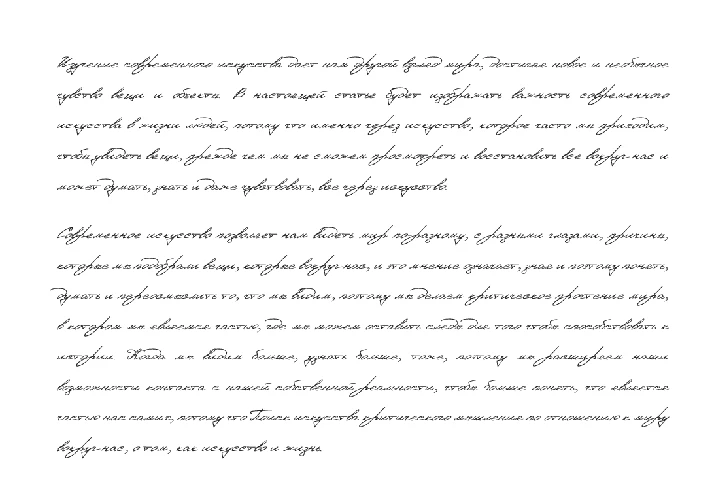 Изучение современного искусства дает нам другой взгляд мира, достигая новое и необычное
чувство вещи и области. В настоящей статье будет изображать важность современного
искусства в жизни людей, потому что именно через искусство, которое часто мы приходим,
чтобы увидеть вещи, прежде чем мы не сможем просмотреть и восстановить все вокруг нас и
может думать, знать и даже чувствовать, все через искусство.
Современное искусство позволяет нам видеть мир по-разному, с разными глазами, причины,
которые мы подобрали вещи, которые вокруг нас, и это мнение означает, зная и потому понять,
думать и переосмыслить то, что мы видим, потому мы делаем критическое прочтение мира,
в котором мы являемся частью, где мы можем оставить следы для того чтобы способствовать к
истории. Когда мы видим больше, узнать больше, тоже, потому мы расширяем наши
возможности контакта с нашей собственной реальности, чтобы больше понять, что является
частью нас самих, потому что Поиск искусства критического мышления по отношению к миру
вокруг нас, о том, как искусство и жизнь.